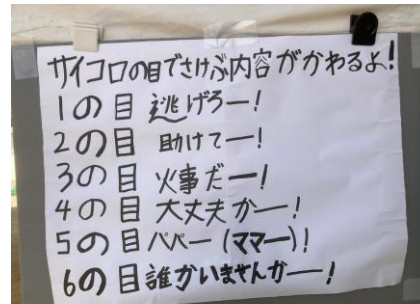 サイコロの目でさけぶ内容がかわるよ!
1の目 逃げろー!
2の目 助けてー!
3の目 火事だー!
4の目 大丈夫かー!
5の目 パパー(ママー)!
6の目 誰かいませんかー!